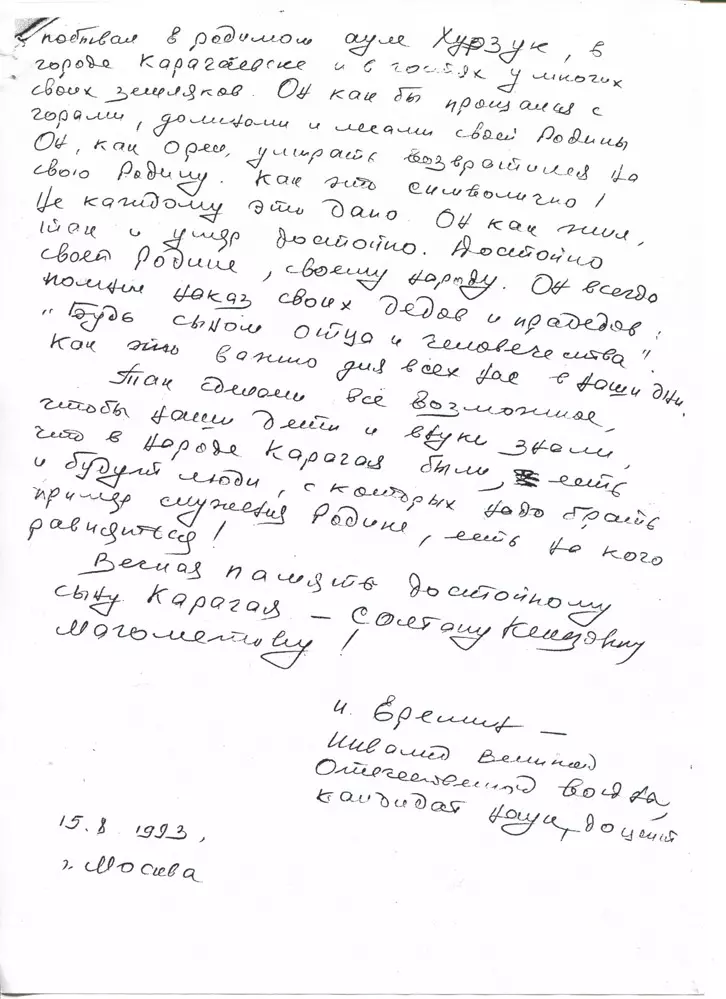 побывал в родимом ауле Хурзук, в
городе Карачаевске и в гостях у многих
своих земляков. Он как бы прощался с
горами, долинами и лесами своей Родины
Он, как орел, умирать возвратился на
свою Родину. Как это символично!
Не каждому это дано. Он как жил,
так и умер достойно. Достойно
своей Родине, своему народу. Он всегда
помнил наказ своих дедов и прадедов:
"Будь сыном отца и человечества".
Как это важно для всех нас в наши дни.
Так сделаем все возможное,
чтобы наши дети и внуки знали,
что в народе Карачая были, есть
и будут люди, с которых надо брать
пример служения Родине, есть на кого
равняться!
Вечная память достойному
сыну Карачая – Солтану
Магометову!
И. Еремин –
Инвалид Великой
Отечественной войны,
кандидат наук, доцент
15.8 1993,
г. Москва